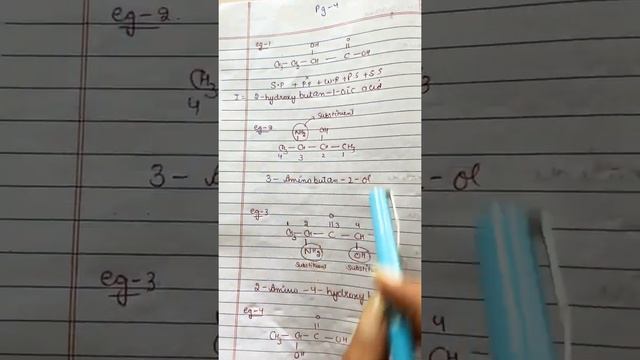 Pg-4
eg-1
OH O
CH3-CH2-CH - C-OH
S.P + P.P + W.R + P.S + S.S
I = 2-hydroxy butan-1-oic acid
eg-2
substituent
NH2 OH
CH3-CH-CH-CH3
4 3 2 1
3-Aminobutan-2-ol
eg-3
O
1 2 3 4
CH3-CH-C-CH
NH2 OH
substituent substitu
2-Amino-4-hydroxy
eg-4
O
CH3-CH-C-OH
OH